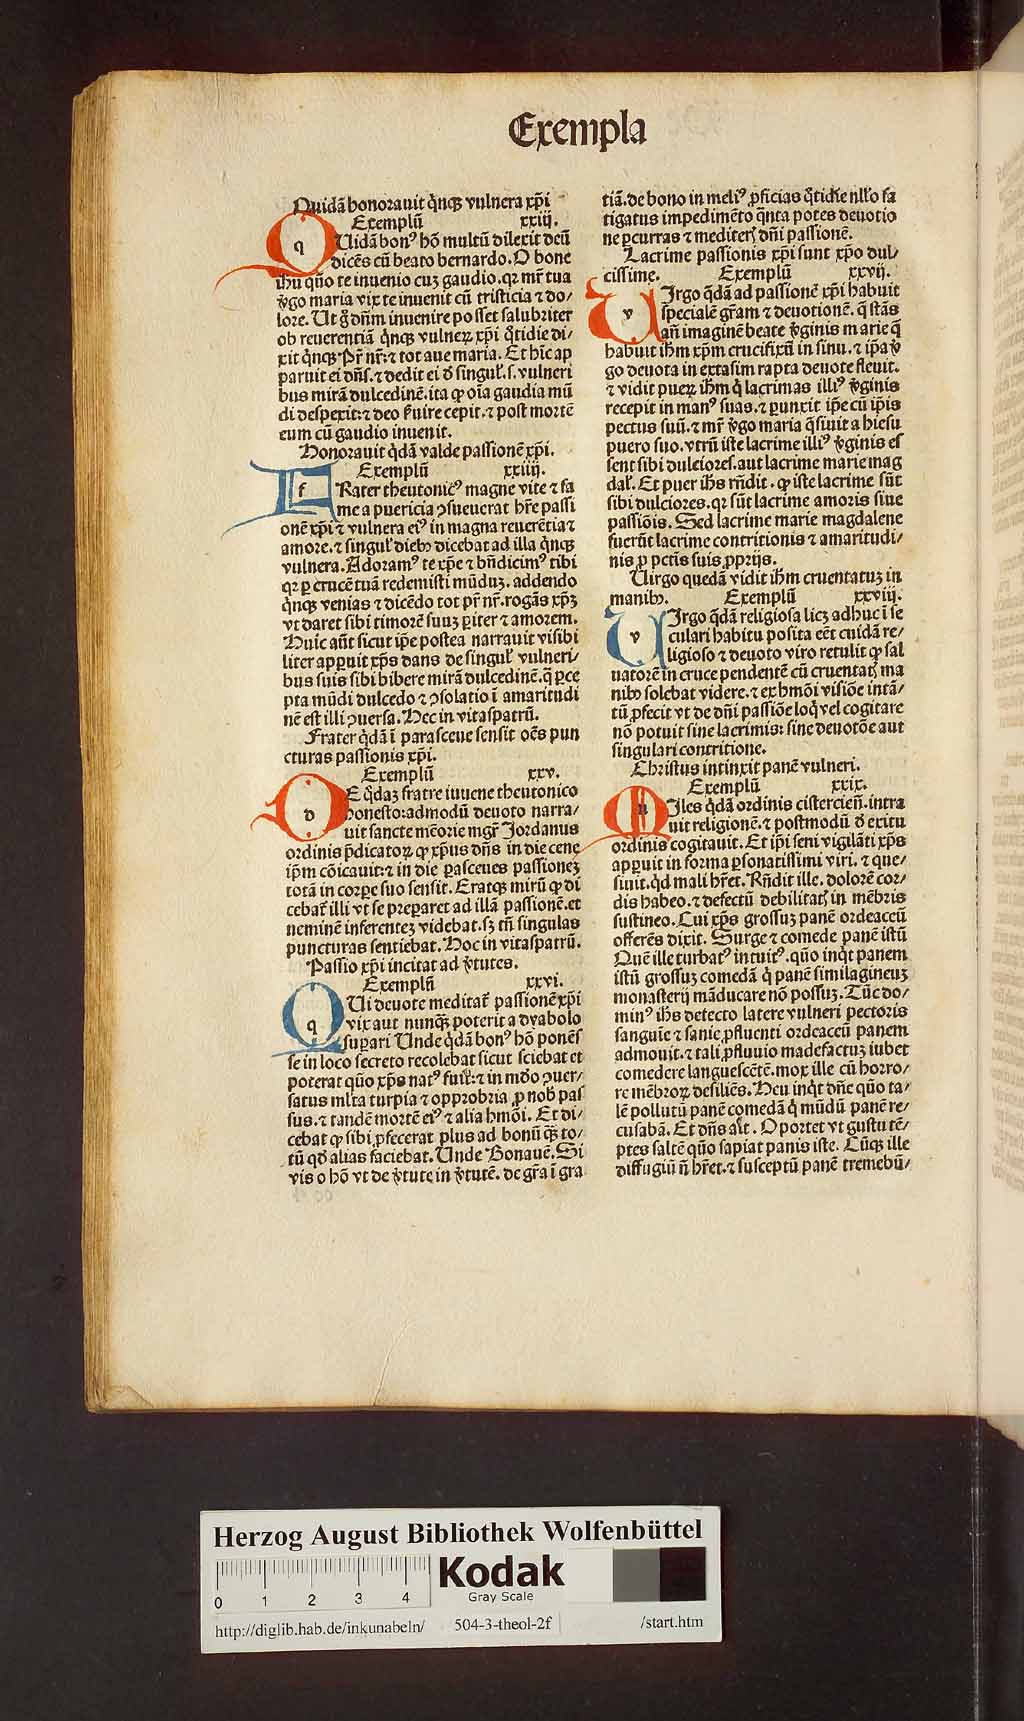 Exempla
Quidā honorauit q̈nq; vulnera xp̄i
Exemplū xxiij.
q Uidā bonꝰ hō multū dilexit deū
dicēs cū beato bernardo. O bone
ih̄u quō te inuenio cuȝ gaudio. qꝛ mr̄ tua
v̄go maria vix te inuenit cū tristicia ⁊ do/
lore. Ut g̊ dn̄m inuenire posset salubriter
ob reuerentiā q̈nq; vulneꝝ xp̄i q̊tidie di/
xit q̈nq; Pr̄ nr̄: ⁊ tot aue maria. Et hīc ap
paruit ei dn̄s. ⁊ dedit ei ō singul'. s. vulneri
bus mirā dulcedinē. ita ꝙ oīa gaudia mū
di despexit: ⁊ deo ẜuire cepit. ⁊ post mortē
eum cū gaudio inuenit.
Honorauit q̇dā valde passionē xp̄i.
Exemplū xxiiij.
f Rater theutonicꝰ magne vite ⁊ fa
me a puericia ꝯsueuerat hr̄e passi
onē xp̄i ⁊ vulnera eiꝰ in magna reuerētia ⁊
amore. ⁊ singul' dieb; dicebat ad illa q̈nq;
vulnera. Adoramꝰ te xp̄e ⁊ bn̄dicimꝰ tibi
qꝛ ꝑ crucē tuā redemisti mūduȝ. addendo
q̈nq; venias ⁊ dicēdo tot pr̄ nr̄. rogās xp̄ȝ
vt daret sibi timorē suuȝ ꝑiter ⁊ amorem.
Huic aūt sicut ip̄e postea narrauit visibi
liter apꝑuit xp̄s dans de singul' vulneri/
bus suis sibi bibere mirā dulcedinē. q̄ ꝑce
pta mūdi dulcedo ⁊ ꝯsolatio ī amaritudi
nē est illi ꝯuersa. Hec in vitaspatrū.
Frater q̇dā ī parasceue sensit oēs pun
cturas passionis xp̄i.
Exemplū xxv.
d E q̇daȝ fratre iuuene theutonico
honesto: admodū deuoto narra/
uit sancte mēorie mgr̄ Jordanus
ordinis p̄dicatoꝝ ꝙ xp̄us dn̄s in die cene
ip̄m cōicauit: ⁊ in die parasceues passioneȝ
totā in corꝑe suo sensit. Eratq; mirū ꝙ di
cebat' illi vt se p̄pararet ad illā passionē. et
neminē inferenteȝ videbat. sȝ tn̄ singulas
puncturas sentiebat. Hoc in vitaspatrū.
Passio xp̄i incitat ad v̄tutes.
Exemplū xxvi.
q Ui deuote meditat' passionē xp̄i
vix aut nunq̄ poterit a dyabolo
suꝑari Unde q̇dā bonꝰ hō ponēs
se in loco secreto recolebat sicut sciebat et
poterat quō xp̄s natꝰ fuit: ⁊ in mō ꝯuer/
satus ml'ta turpia ⁊ opprobria ꝓ nob̄ pas
sus. ⁊ tandē mortē eiꝰ ⁊ alia hmōi. Et di/
cebat ꝙ sibi ꝓfecerat plus ad bonū q̄ to/
tū qd̄ alias faciebat. Unde Bonauē. Si
vis o hō vt de v̄tute in v̄tutē. de gr̄a ī gra
tiā. de bono in meliꝰ ꝓficias q̊tidie nll'o fa
tigatus impedimēto q̄nta potes deuotio
ne ꝑcurras ⁊ mediteris dn̄i passionē.
Lacrime passionis xp̄i sunt xp̄o dul/
cissime. Exemplū xxvij.
v Irgo q̄dā ad passionē xp̄i habuit
specialē gr̄am ⁊ deuotionē. q̄ stās
an̄ imaginē beate v̄ginis marie q̄
habuit ih̄m xp̄m crucifixū in sinu. ⁊ ip̄a v̄
go deuota in extasim rapta deuote fleuit.
⁊ vidit pueꝝ ih̄m q̇ lacrimas illiꝰ v̄ginis
recepit in manꝰ suas. ⁊ ꝑunxit ip̄e cū ip̄is
pectus suū. ⁊ mr̄ v̄go maria q̄siuit a hiesu
puero suo. vtrū iste lacrime illiꝰ v̄ginis es
sent sibi dulciores. aut lacrime marie mag
dal'. Et puer ih̄s rn̄dit. ꝙ iste lacrime sūt
sibi dulciores. qꝛ sūt lacrime amoris siue
passiōis. Sed lacrime marie magdalene
fuerūt lacrime contritionis ⁊ amaritudi/
nis ꝓ pctīs suis ꝓprijs.
Uirgo quedā vidit ih̄m cruentatuȝ in
manib;. Exemplū xxviij.
v Irgo q̄dā religiosa licȝ adhuc ī se
culari habitu posita eēt cuidā re/
ligioso ⁊ deuoto viro retulit ꝙ sal
uatorē in cruce pendentē cū cruentatis ma
nib; solebat videre. ⁊ ex hmōi visiōe intā/
tū ꝓfecit vt de dn̄i passiōe loq̇ vel cogitare
nō potuit sine lacrimis: sine deuotōe aut
singulari contritione.
Christus intinxit panē vulneri.
Exemplū xxix.
m Iles q̇dā ordinis cistercien̄. intra
uit religionē. ⁊ postmodū ō exitu
ordinis cogitauit. Et ip̄i seni vigilāti xp̄s
apꝑuit in forma ꝑsonatissimi viri. ⁊ que/
siuit. qd̄ mali hr̄et. Rn̄dit ille. dolorē cor/
dis habeo. ⁊ defectū debilitatis in mēbris
sustineo. Cui xp̄s grossuȝ panē ordeaceū
offerēs dixit. Surge ⁊ comede panē istū
Quē ille turbatꝰ intuitꝰ. quō inq̇t panem
istū grossuȝ comedā q̇ panē similagineuȝ
monasterij māducare nō possuȝ. Tūc do/
minꝰ ih̄s detecto latere vulneri pectoris
sanguīe ⁊ sanie ꝓfluenti ordeaceū panem
admouit. ⁊ tali ꝓfluuio madefactuȝ iubet
comedere languescētē. mox ille cū horro/
re mēbroꝝ desiliēs. Heu inq̇t dn̄e quō ta/
lē pollutū panē comedā q̇ mūdū panē re/
cusabā. Et dn̄s ait. Oportet vt gustu tē/
ptes saltē quō sapiat panis iste. Cūq; ille
diffugiū n̄ hr̄et. ⁊ susceptū panē tremebū/
Herzog August Bibliothek Wolfenbüttel
0 1 2 3 4
Kodak
Gray Scale
http://diglib.hab.de/inkunabeln/ 504-3-theol-2f /start.htm